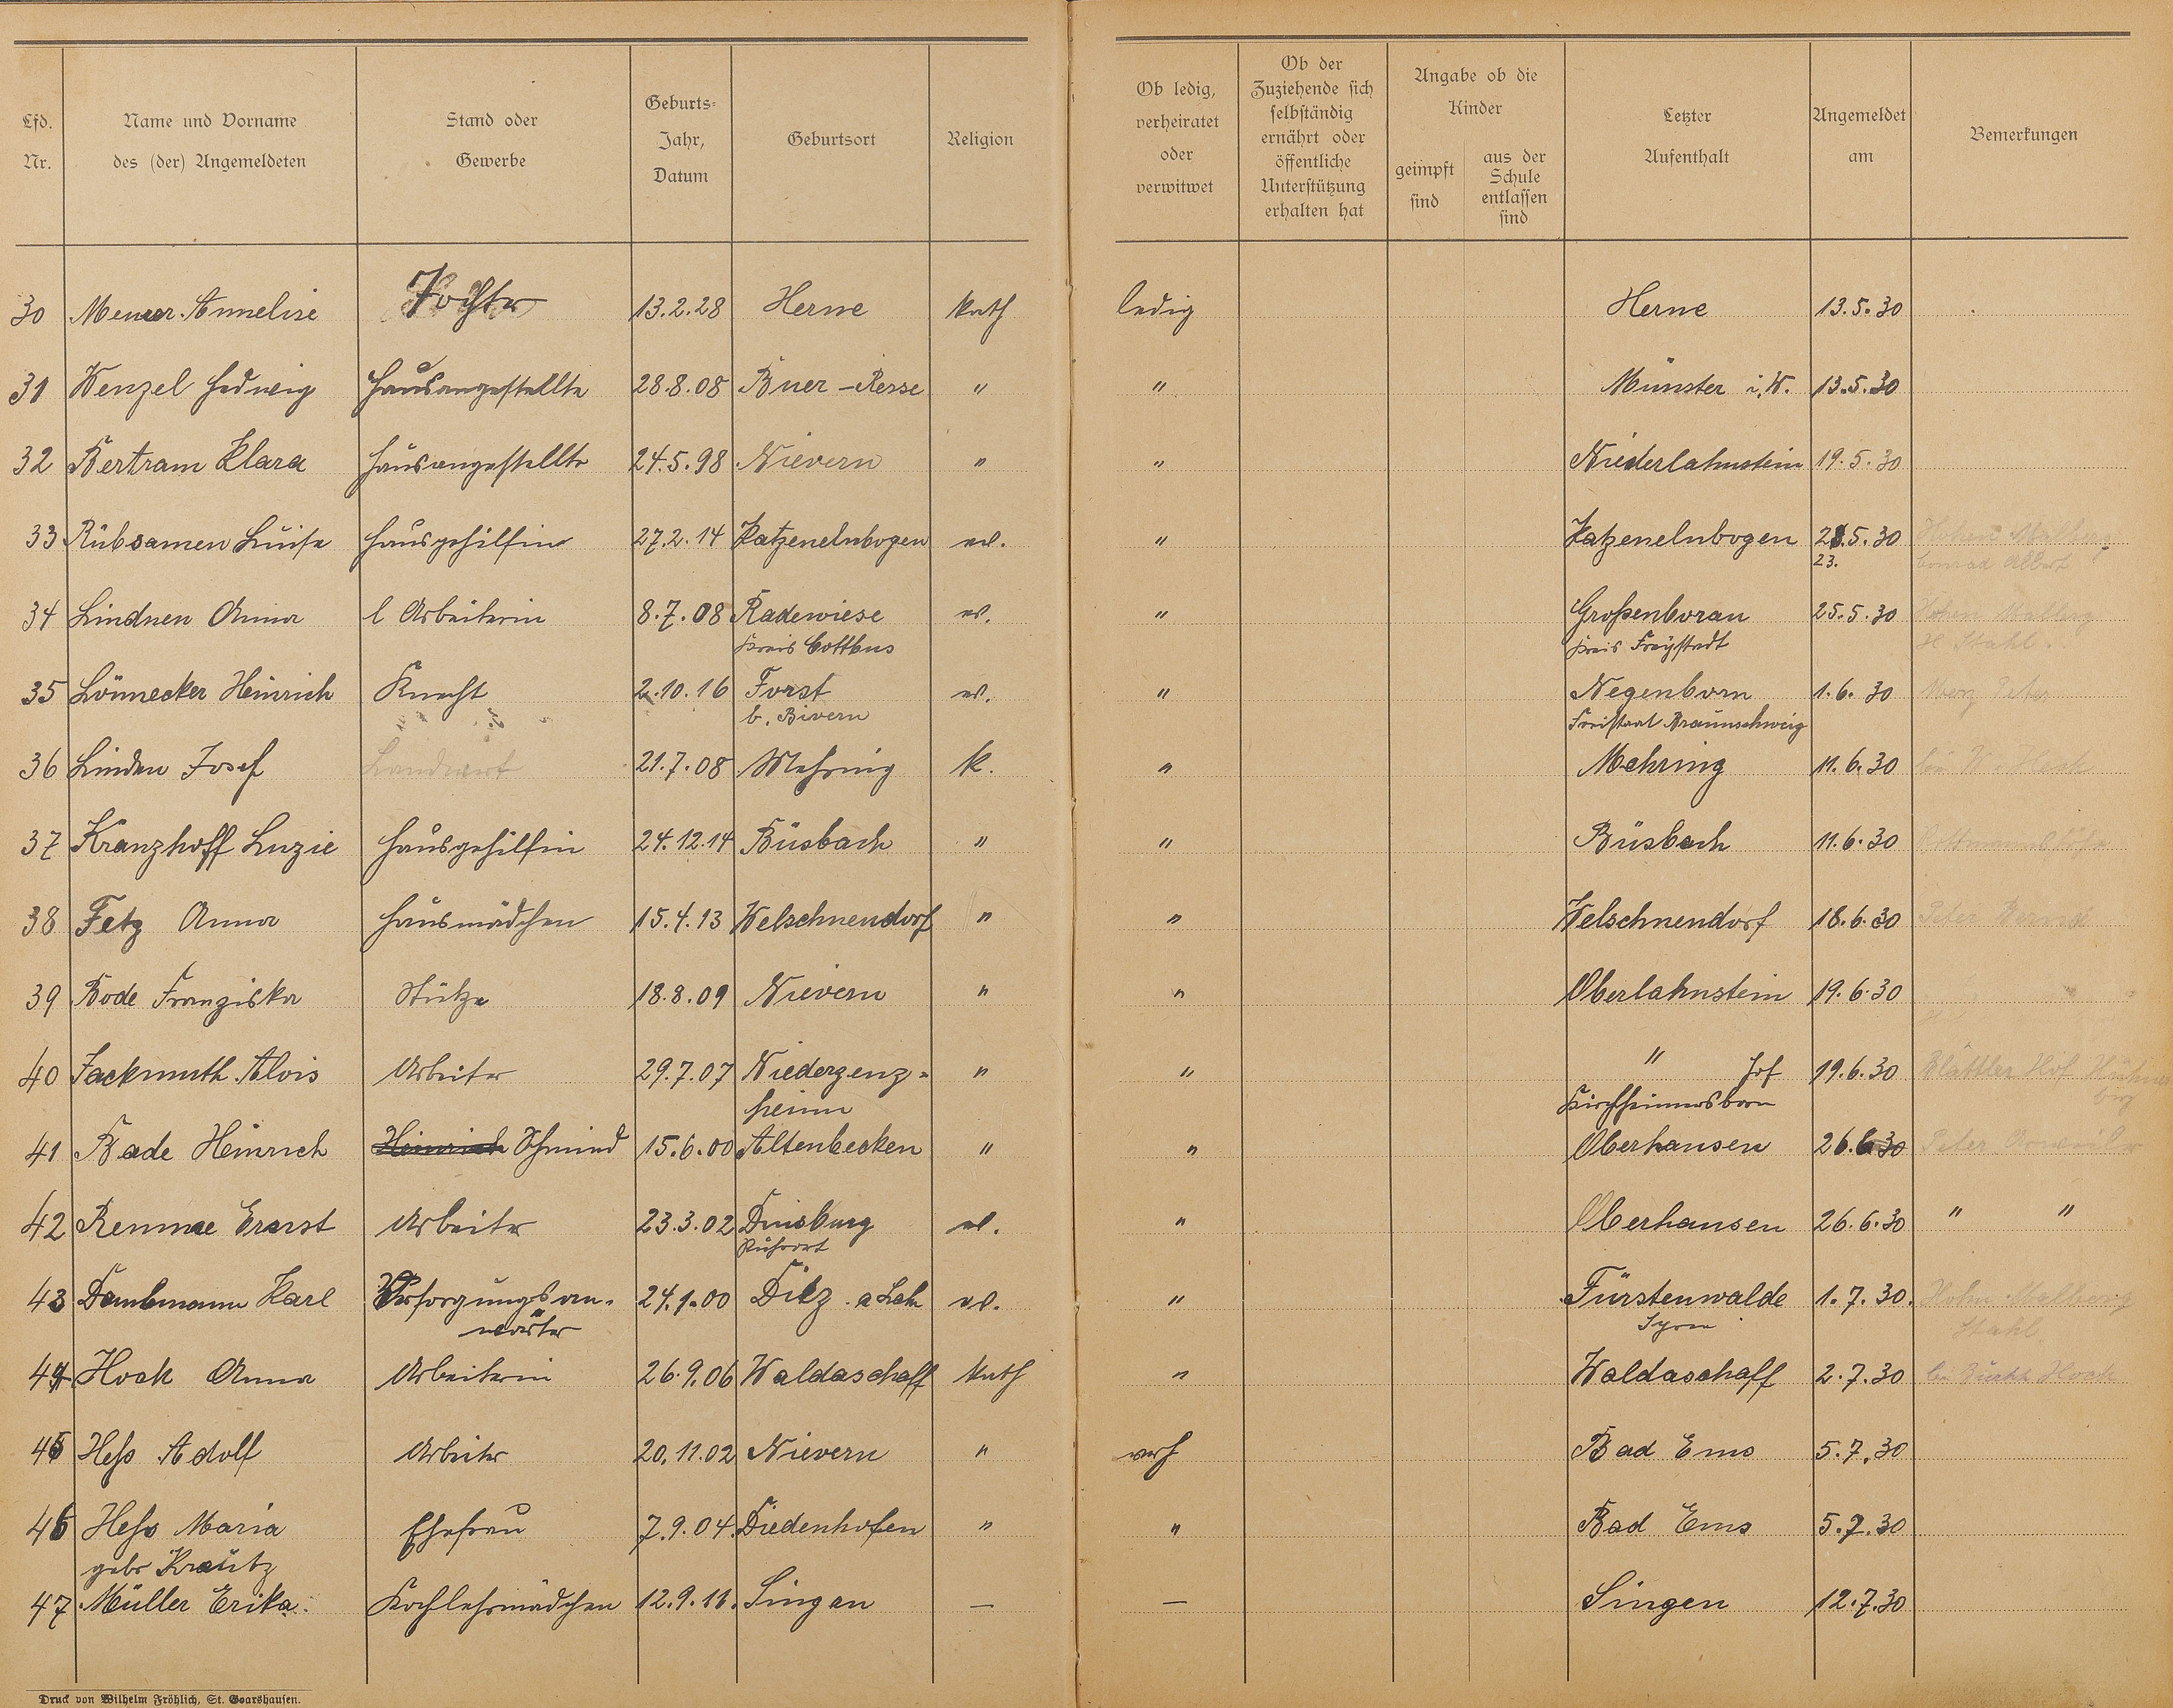 Lfd. Nr.
Name und Vorname des (der) Angemeldeten
Stand oder Gewerbe
Geburts-Jahr, Datum
Geburtsort
Religion
Ob ledig, verheiratet oder verwitwet
Ob der Zuziehende sich selbständig ernährt oder öffentliche Unterstützung erhalten hat
Angabe ob die Kinder
geimpft sind
aus der Schule entlassen sind
Letzter Aufenthalt
Angemeldet am
Bemerkungen
30 Meurer Annelise Tochter 13.2.28 Herne kath ledig Herne 13.5.30
31 Wenzel Hedwig Hausangestellte 28.8.08 Buer-Resse " " Münster i.W. 13.5.30
32 Bertram Klara Hausangestellte 24.5.98 Nievern " " Niederlahnstein 19.5.30
33 Rübsamen Luise Hausgehilfin 27.2.14 Katzenelnbogen ev. " Katzenelnbogen 28.5.30 Hohen Malberg
23. Conrad Albert
34 Lindnen Anna l Arbeiterin 8.7.08 Radewiese ev. " Großenboran 25.5.30 Hohen Malberg
Kreis Cottbus Kreis Freystadt H Stahl.
35 Lönnecker Heinrich Knecht 2.10.16 Forst ev. " Negenborn 1.6.30 Peter
b. Bivern Freistaat Braunschweig
36 Linden Josef Landwirt 21.7.08 Mehring k. " Mehring 11.6.30 bei W. Hock
37 Kranzhoff Luzie Hausgehilfin 24.12.14 Büsbach " " Büsbach 11.6.30
38 Fetz Anna Hausmädchen 15.4.13 Welschneudorf " " Welschneudorf 18.6.30 Peter
39 Bode Franziska Stütze 18.8.09 Nievern " " Oberlahnstein 19.6.30
40 Fackmuth Alois Arbeiter 29.7.07 Niederzenz- " " " Hof 19.6.30 Blättler Hof Hühner
heim Kirchheimersborn berg
41 Bade Heinrich Heinrich Schmied 15.6.00 Altenbecken " " Oberhausen 26.6.30 Peter
42 Remme Ernst Arbeiter 23.3.02 Duisburg ev. " Oberhausen 26.6.30 " "
Ruhrort
43 Dambmann Karl Versorgungsan- 24.1.00 Diez a Lah ev. " Fürstenwalde 1.7.30. Hohen Malberg
wärter Spree Stahl
44 Hock Anna Arbeiterin 26.9.06 Waldaschaff kath " Waldaschaff 2.7.30 bei Hock
45 Heß Adolf Arbeiter 20.11.02 Nievern " verh Bad Ems 5.7.30
46 Heß Maria Ehefrau 7.9.04. Diedenhofen " " Bad Ems 5.7.30
gebr Krautz
47 Müller Erika. Kochlehrmädchen 12.9.11. Singen — — Singen 12.7.30
Druck von Wilhelm Fröhlich, St. Goarshausen.